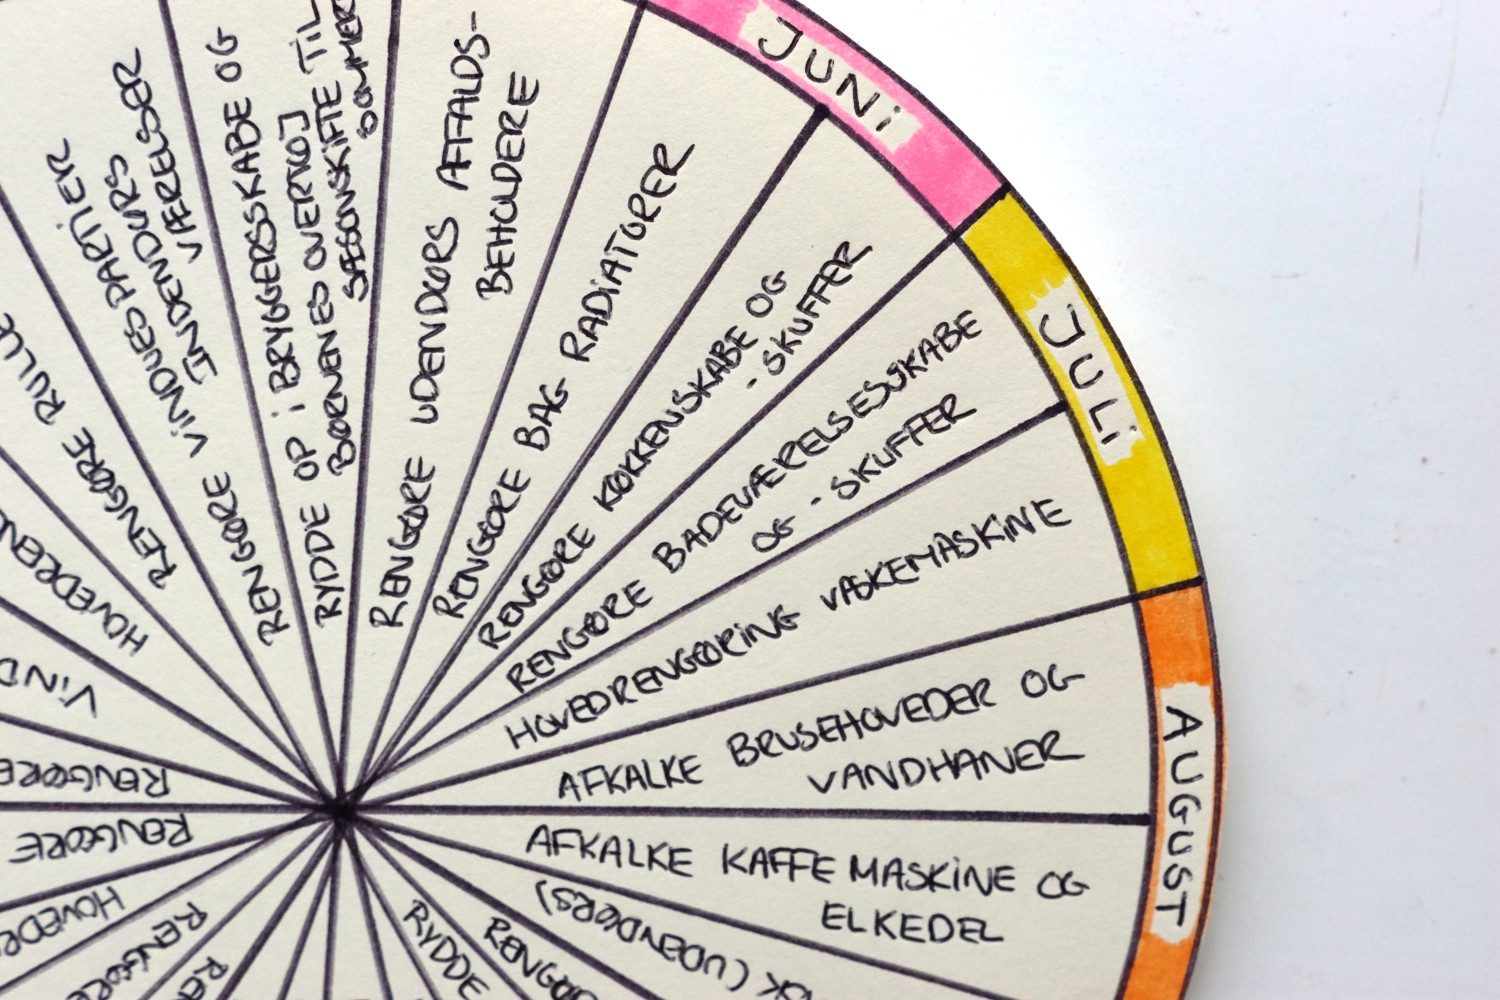 JUNi
JULi
AUGUST
RENGØRE RULLE
RENGØRE VINDUESPARTIER
INDENDØRS
VÆRELSER
RYDDE OP i BRYGGERSSKABE OG
BØRNENES OVERTØJ
SÆSONSKIFTE TIL
SOMMER
RENGØRE UDENDØRS AFFALDS-
BEHOLDERE
RENGØRE BAG RADiATORER
RENGØRE KØKKENSKABE OG
- SKUFFER
RENGØRE BADEVÆRELSESSKABE
OG - SKUFFER
HOVEDRENGØRiNG VASKEMASKiNE
AFKALKE BRUSEHOVEDER OG
VANDHANER
AFKALKE KAFFEMASKiNE OG
ELKEDEL
(UDENDØRS)
RENGØ
RYDDE
RENGØRE
HOVEDR
RENGØRE
RENGØRE
ViND
HOVEDREN